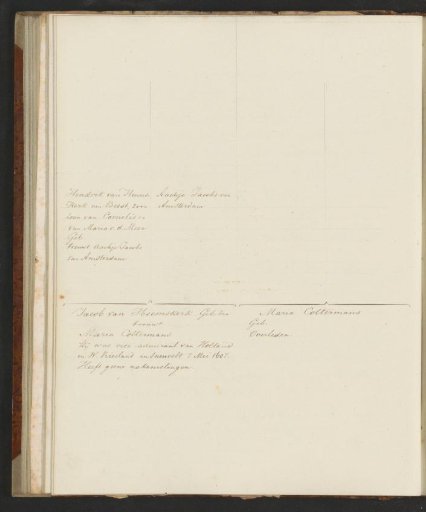 Hendrik van Heems Aachje Jacobs van
Kerk van Beest, zoon Amsterdam
van Cornelis en
van Maria v. d.
Geb.
trouwt Aachje Jacobs
van Amsterdam
Jacob van Heemskerk Geb. den
trouwt
Maria Coltermans
Hij was vice admiraal van Holland
en W. Vriesland en sneuvelt 7 Mei 1607.
Heeft geene nakomelingen.
Maria Coltermans
Geb.
Overleden